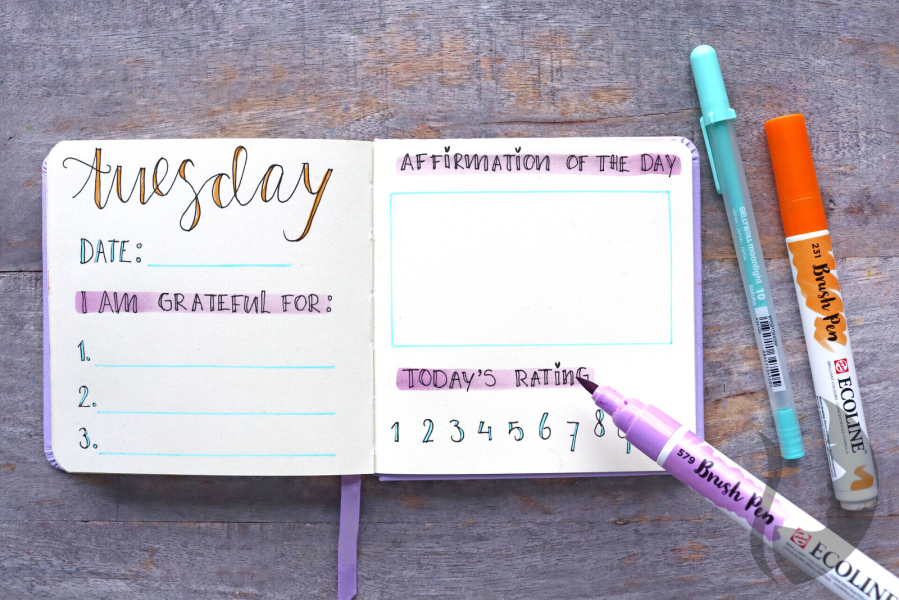 tuesday
DATE:
I AM GRATEFUL FOR:
1.
2.
3.
AFFIRMATION OF THE DAY
TODAY'S RATING
1 2 3 4 5 6 7 8
GELLY ROLL moonlight 10
231 Brush Pen
ECOLINE
579 Brush Pen
ECOLINE